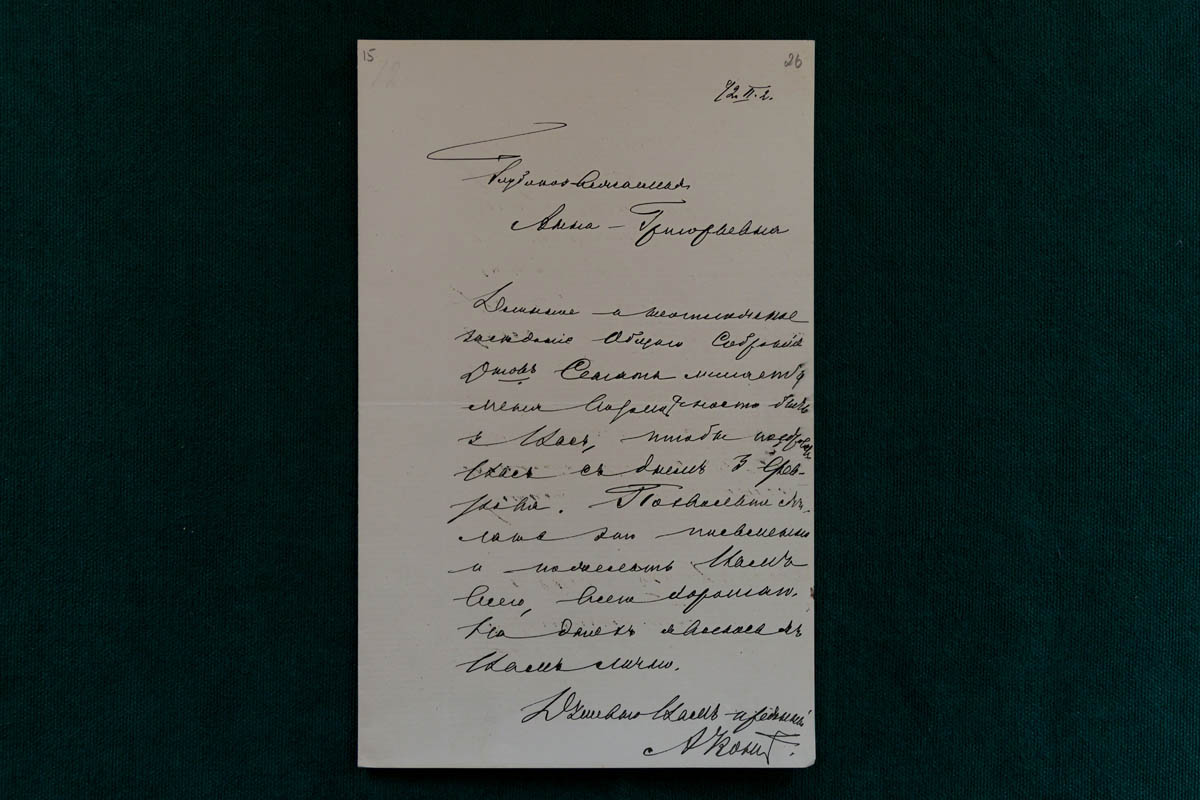 15
26
Глубокоуважаемая
Анна Григорьевна
Длинное и неотложное
заседание Общаго Собранія
Сената лишаетъ
меня возможности быть
у Васъ, чтобы поздравить
Васъ съ днемъ 3 Фев-
раля. Позвольте сдѣ-
лать это письменно
и пожелать Вамъ
всего, всего хорошаго.
На дняхъ явлюсь къ
Вамъ лично.
Душевно Вамъ преданный
АКони.